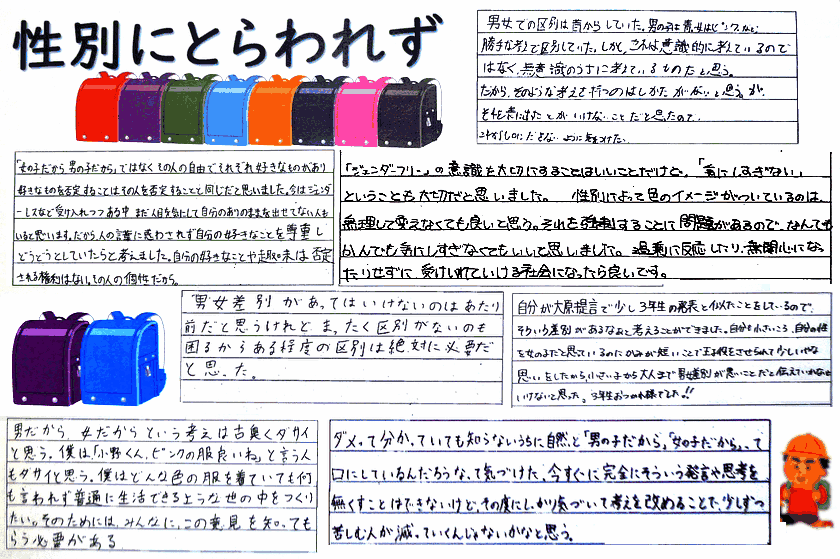 性別にとらわれず
男女での区別は昔からしていた。男の子は青、女はピンク、など
勝手な考えで区別していた。しかし、これは意識的に考えているので
はなく、無意識のうちに考えているものだと思う。
だから、そのような考えを持つのはしかたがないと思うが、
それを表に出すことがいけないことだと思ったので、
これから口にださないように気をつけたい。
「女の子だから男の子だから」ではなくその人の自由でそれぞれ好きなものがあり
好きなものを否定することはその人を否定することと同じだと思いました。今はジェンダ
ーレスなど受け入れつつある中まだ人目を気にして自分のありのままを出せてない人も
いると思います。だから人の言葉に惑わされず自分の好きなことを尊重し
どうどうとしていたらと考えました。自分の好きなことや趣味は否定
される権利はない。その人の個性だから。
「ジェンダーフリー」の意識を大切にすることはいいことだけど、「気にしすぎない」
ということも大切だと思いました。 性別によって色のイメージがついているのは、
無理して変えなくても良いと思う。それを強制することに問題があるので、なんでも
かんでも気にしすぎなくてもいいと思いました。過剰に反応したり、無関心になっ
たりせずに受けいれていける社会になったら良いです。
男女差別があってはいけないのはあたり
前だと思うけれどまったく区別がないのも
困るからある程度の区別は絶対に必要だ
と思った。
自分が大原提言で少し3年生の発表と似たことをしているので、
そういう差別があるなぁと考えることができました。自分も小さいころ、自分の性
を女の子だと思っているのにかみが短いことで王子役をさせられて少しいやな
思いをしたから、小さい子から大人まで男女差別が悪いことだと伝えていかなきゃ
いけないと思った。3年生おつかれ様でした!!
男だから、女だからという考えは古臭くダサイ
と思う。僕は、「小野くん、ピンクの服良いね」と言う人
もダサイと思う。僕はどんな色の服を着ていても何
も言われず普通に生活できるような世の中をつくり
たい。そのためには、みんなに、この意見を知っても
らう必要がある
ダメって分かっていても知らないうちに自然と「男の子だから」「女の子だから」って
口にしているんだろうなって気づけた。今すぐに完全にそういう発言や思考を
無くすことはできないけど、その度にしっかり気づいて考えを改めることで、少しずつ
苦しむ人が減っていくんじゃないかなと思う。